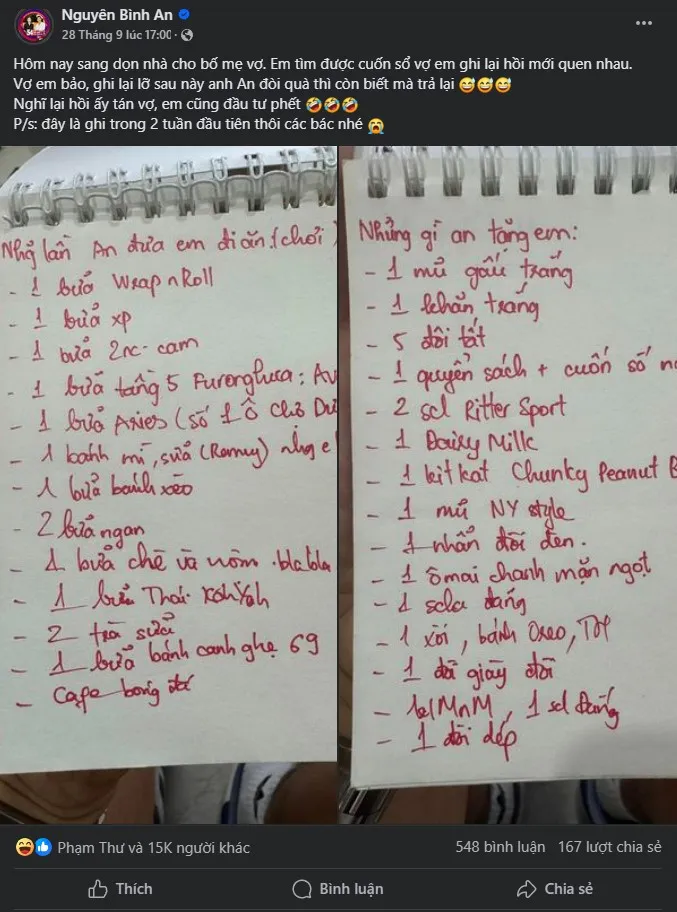 Nguyên Bình An
28 Tháng 9 lúc 17:00 ·
Hôm nay sang dọn nhà cho bố mẹ vợ. Em tìm được cuốn sổ vợ em ghi lại hồi mới quen nhau.
Vợ em bảo, ghi lại lỡ sau này anh An đòi quà thì còn biết mà trả lại 😅😅😅
Nghĩ lại hồi ấy tán vợ, em cũng đầu tư phết 🤣🤣🤣
P/s: đây là ghi trong 2 tuần đầu tiên thôi các bác nhé 😭
lần An đưa em đi ăn (chơi
- 1 bữa Wrap n Roll
- 1 bữa xp
- 1 bữa 2nc- cam
- 1 bữa tầng 5
- 1 bữa (số 1 Ô Chợ
- 1 bánh mì, sữa
- 1 bữa bánh xèo
- 2 bữa ngan
- 1 bữa chè và nôm . blabla
- 1 bữa Thái KohYah
- 2 trà sữa
- 1 bữa bánh canh ghẹ 69
- Cafe bóng đá
Những gì an tặng em:
- 1 mũ gấu trắng
- 1 khăn trắng
- 5 đôi tất
- 1 quyển sách + cuốn sổ
- 2 scl Ritter Sport
- 1 Dairy Milk
- 1 kitkat Chunky Peanut B
- 1 mũ NY style
- 1 nhẫn đôi đen.
- 1 ômai chanh mặn ngọt
- 1 scla đắng
- 1 xôi, bánh Oreo,
- 1 đôi giày đôi
- MnM, 1 scl đắng
- 1 đôi dép
Phạm Thư và 15K người khác
548 bình luận 167 lượt chia sẻ
Thích Bình luận Chia sẻ